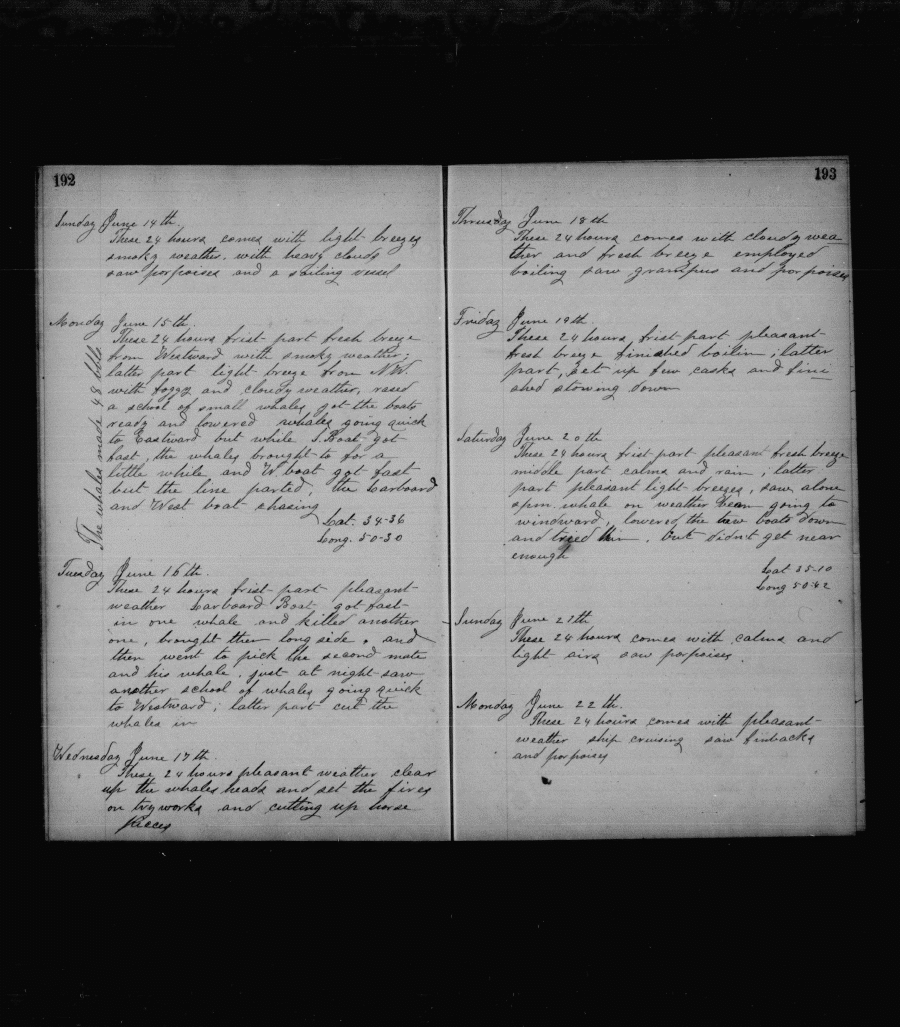 192
Sunday June 14th.
These 24 hours comes with light breezes
smoky weather, with heavy clouds
saw porpoises and a sailing vessel
Monday June 15th.
These 24 hours frist part fresh breeze
from Westward with smoky weather;
latter part light breeze from N.W.
with foggy and cloudy weather, rased
a school of small whales got the boats
ready and lowered whales going quick
to Eastward but while S. Boat got
fast, the whales brought to for a
little while and W boat got fast
but the line parted, the Larboard
and West boat chasing
Lat. 34-36
Long. 50-30
The whales made 48 bbls
Tuesday June 16th.
These 24 hours frist part pleasant
weather Larboard Boat got fast
in one whale and killed another
one, brought ther long side, and
then went to pick the second mate
and his whale, just at night saw
another school of whales going quick
to Westward; latter part cut the
whales in
Wednesday June 17th.
These 24 hours pleasant weather clear
up the whales heads and set the fires
on tryworks and cutting up horse
Pieces
193
Thrusday June 18th
These 24 hours comes with cloudy wea
ther and fresh breeze employed
boiling saw grampus and porpoises
Friday June 19th.
These 24 hours, frist part pleasant
fresh breeze finished boilin; latter
part, set up few casks and fini
shed stowing down
Saturday June 20th
These 24 hours frist part pleasant fresh breeze
middle part calms and rain; latter
part pleasant light breezes, saw alone
spm. whale on weather beam going to
windward, lowered the two boats down
and treed him, but didn't get near
enough
Lat 35-10
Long 50-42
Sunday June 21th
These 24 hours comes with calms and
light airs saw porpoises.
Monday June 22th.
These 24 hours comes with pleasant
weather ship cruising saw finbacks
and porpoises